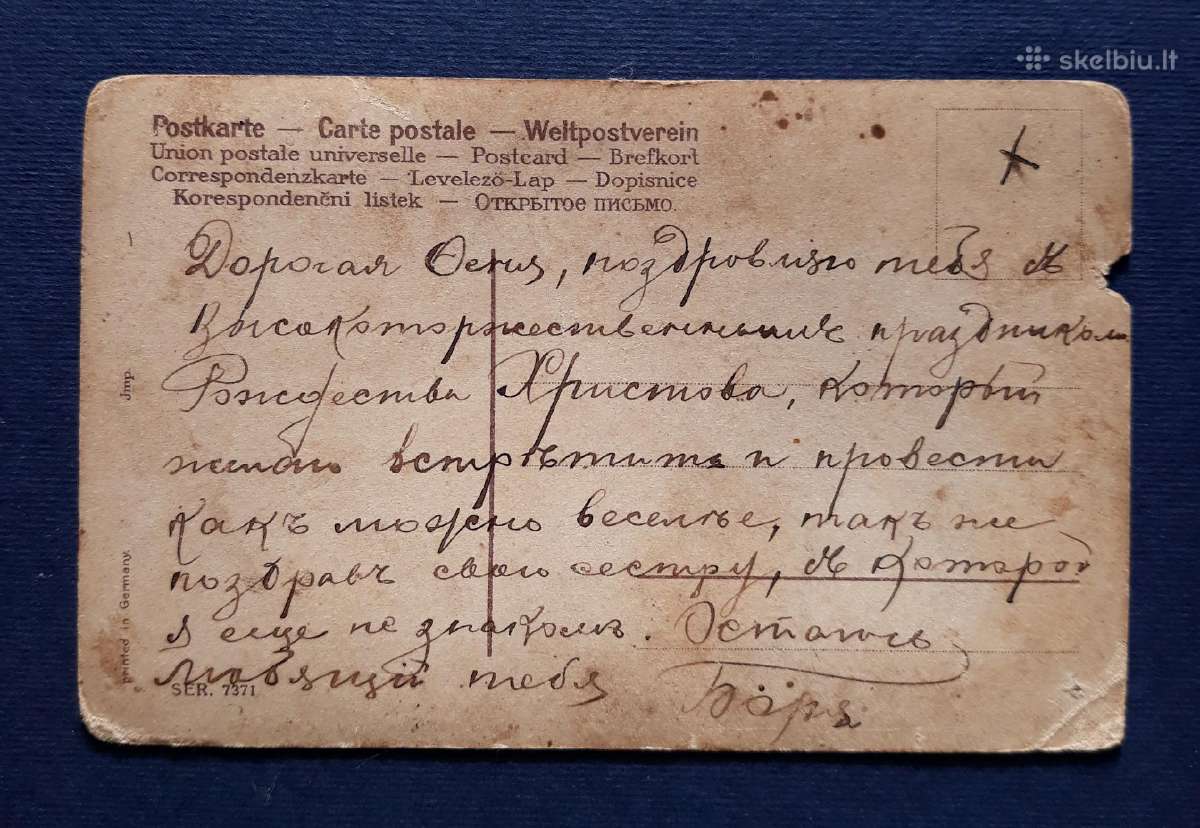 skelbiu.lt
Postkarte — Carte postale — Weltpostverein
Union postale universelle — Postcard — Brefkort
Correspondenzkarte — Levelező-Lap — Dopisnice
Korespondenčni listek — Открытое письмо.
Дорогая Ося, поздровляю тебя съ
высокоторжественнымъ праздникомъ
Рождества Христова, который
желаю встрѣтить и провести
какъ можно веселѣе, такъ же
поздравъ свою сестру, съ которой
я еще не знакомъ. Остаюсь
любящій тебя
Боря
Jmp.
printed in Germany.
SER. 7371